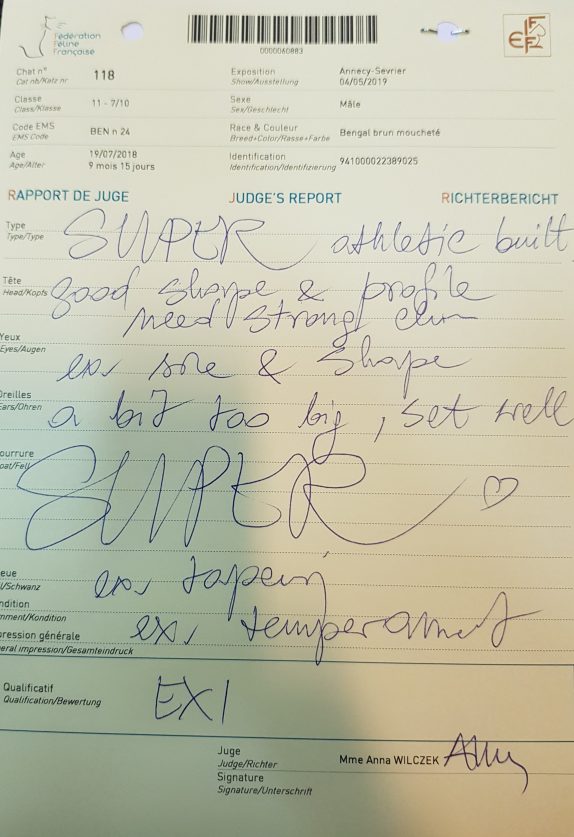 Fédération
Féline
Française
0000060883
FFF
Chat n° 118 Exposition Annecy-Sevrier
Cat nb/Katz nr Show/Ausstellung 04/05/2019
Classe 11 - 7/10 Sexe Mâle
Class/Klasse Sex/Geschlecht
Code EMS BEN n 24 Race & Couleur Bengal brun moucheté
EMS Code Breed+Color/Rasse+Farbe
Age 19/07/2018 Identification 941000022389025
Age/Alter 9 mois 15 jours Identification/Identifizierung
RAPPORT DE JUGE JUDGE'S REPORT RICHTERBERICHT
Type SUPER athletic built,
Type/Type
Tête good shape & profile
Head/Kopfs need strong chin
Yeux ex. size & shape
Eyes/Augen
Oreilles a bit too big, set well
Ears/Ohren
ourrure SUPER ♡
oat/Fell
eue ex. tapering
l/Schwanz
ndition ex. temperament
mment/Kondition
pression générale
eral impression/Gesamteindruck
Qualificatif EX1
Qualification/Bewertung
Juge Mme Anna WILCZEK
Judge/Richter
Signature
Signature/Unterschrift